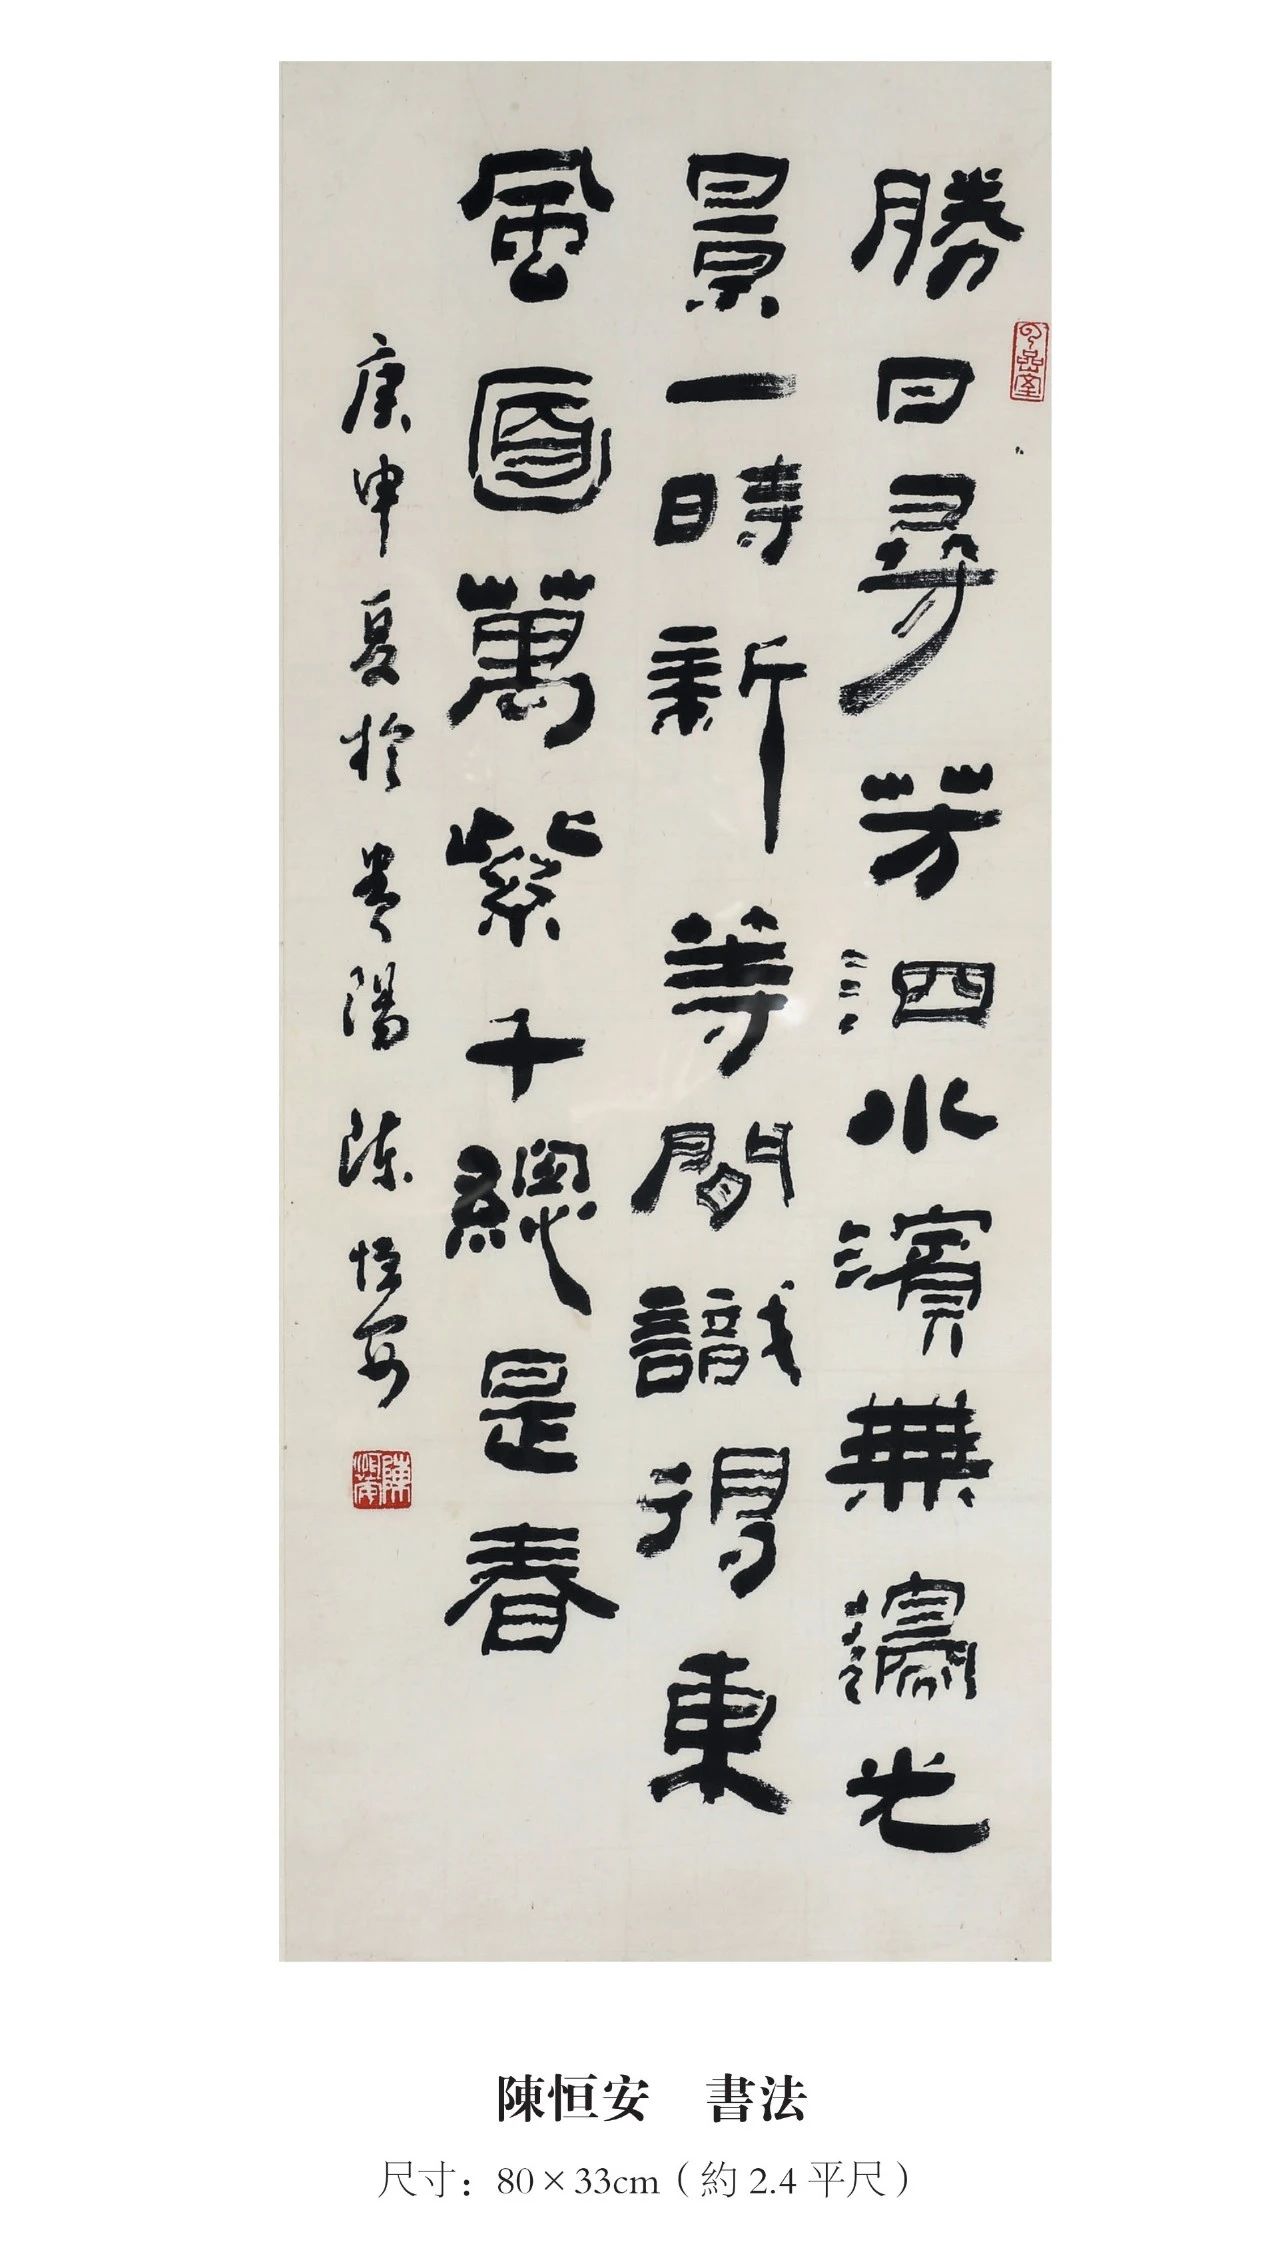 勝日尋芳泗水濱無邊光
景一時新等間識得東
風面萬紫千總是春
庚申夏於貴陽 陳恒安
陳恒安
陳恒安 書法
尺寸：80×33cm（約2.4平尺）